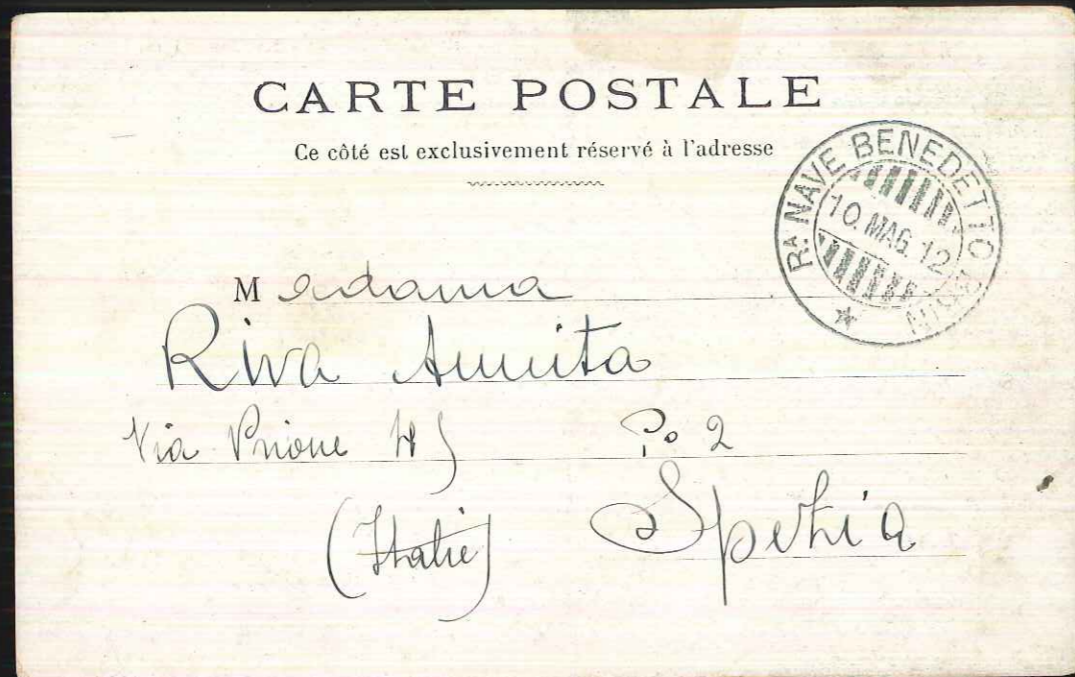 CARTE POSTALE
Ce côté est exclusivement réservé à l'adresse
Rᴬ NAVE BENEDETTO BRIN
10. MAG. 12
Madama
Riva Annita
Via Prione P.o 2
Spezia
(Italie)